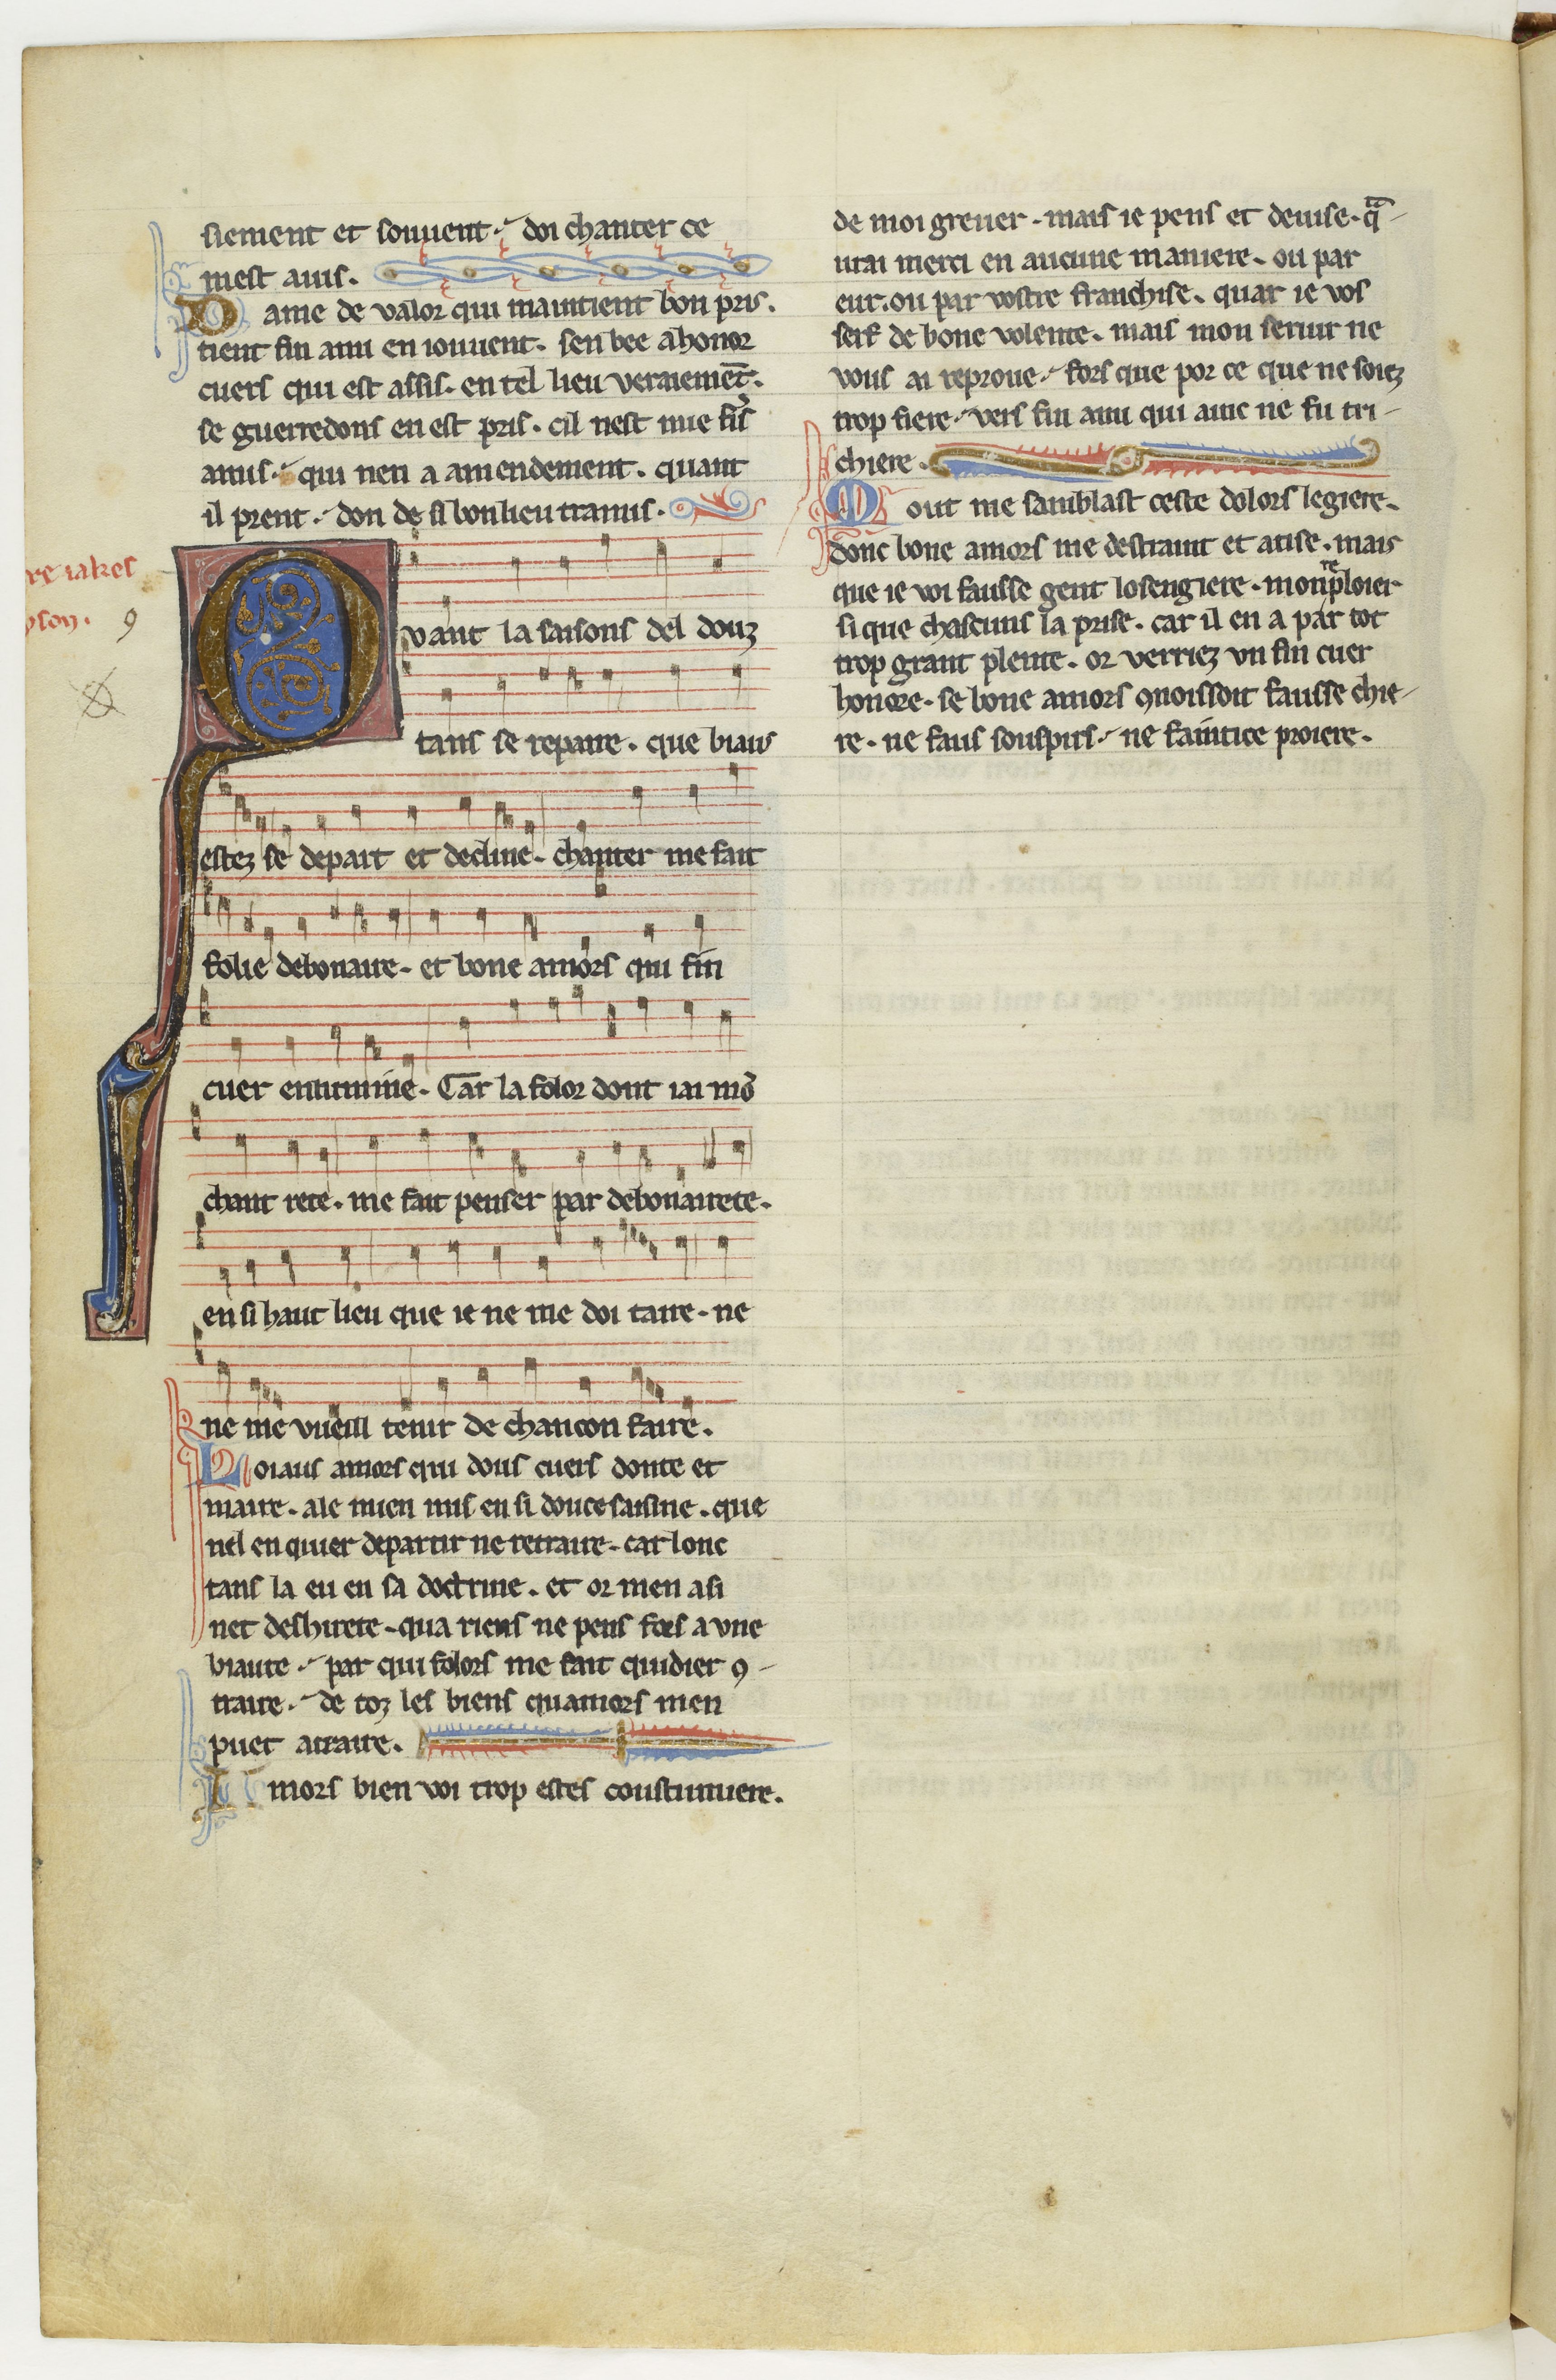 siement et souuent. doi chanter ce
mest auis.
Dame de valor qui maintient bon pris.
tient fin ami en iouuent. sen bee a honor
cuers qui est assis. en tel lieu veraiemēt.
se guerredons en est pris. cil nest mie fis
amis. qui nen a amendement. quant
il prent. don de si bon lieu tramis.
re iakes
yson. 9
Qvant la saisons del douz
tans se repaire. que biaus
estez se depart et decline. chanter me fait
folie debonaire. et bone amors qui fin
cuer enlumine. Car la folor dont iai mō
chant rete. me fait penser par debonairete.
en si haut lieu que ie ne me doi taire. ne
ne me vueill tenir de chancon faire.
Loiaus amors qui dous cuers donte et
maire. a le mien mis en si douce saisine. que
nel en quier departir ne retraire. car lonc
tans la eu en sa doctrine. et or men a si
net deshirete. qua riens ne pens fors a vne
biaute. par qui folors me fait quidier 9-
traire. de toz les biens quamors men
puet atraire.
Amors bien voi trop estes coustumiere.
de moi greuer. mais ie pens et deuise. qa-
urai merci en aucune maniere. ou par
eur. ou par vostre franchise. quar ie vos
serf de bone volente. mais mon seruir ne
vous ai reproue. fors que por ce que ne soiez
trop fiere. vers fin ami qui ainc ne fu tri-
chiere.
Mout me samblast ceste dolors legiere.
donc bone amors me destraint et atise. mais
que ie voi fausse gent losengiere. monreploier
si que chascuns la prise. car il en a par tot
trop grant plente. or verriez vn fin cuer
honore. se bone amors 9noissoit fausse chie-
re. ne faus souspirs. ne faintice proiere.